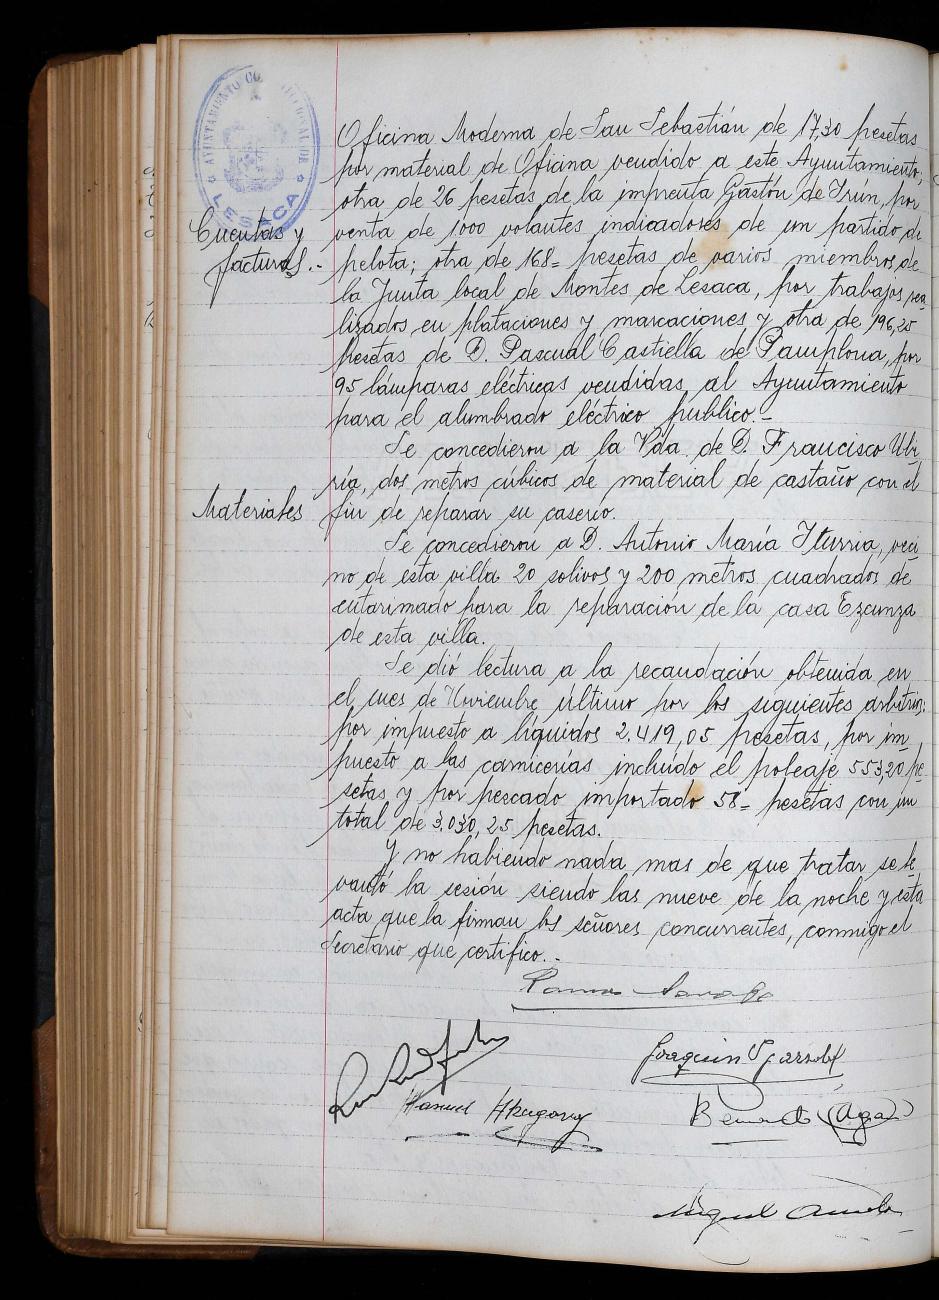 AYUNTAMIENTO CONSTITUCIONAL DE
LESACA
Oficina Moderna de San Sebastián de 17,30 pesetas
por material de Oficina vendido a este Ayuntamiento,
otra de 26 pesetas de la imprenta Gastón de Irún, por
Cuentas y
venta de 1000 volantes indicadores de un partido de
facturas.-
pelota; otra de 168= pesetas de varios miembros de
la Junta local de Montes de Lesaca, por trabajos rea
lizados en plataciones y marcaciones y otra de 196,25
pesetas de D. Pascual Castiella de Pamplona, por
95 lámparas eléctricas vendidas, al Ayuntamiento
para el alumbrado eléctrico publico.-
Se concedieron a la Vda. de D. Francisco Ubi-
ria, dos metros cúbicos de material de castaño con el
Materiales
fin de reparar su caserio.
Se concedieron a D. Antonio María Iturria, veci
no de esta villa 20 solivos y 200 metros cuadrados de
entarimado para la reparación de la casa Ezcunza
de esta villa.
Se dió lectura a la recaudación obtenida en
el mes de Noviembre último por los siguientes arbitrios:
por impuesto a líquidos 2.419,05 pesetas, por im
puesto a las carnicerías incluído el poleaje 553,20 pe-
setas y por pescado importado 58= pesetas con un
total de 3.030,25 pesetas.
Y no habiendo nada mas de que tratar se le
vantó la sesión siendo las nueve de la noche y esta
acta que la firman los señores concurrentes, conmigo el
Secretario que certifico.-
Joaquin
Manuel
Miguel